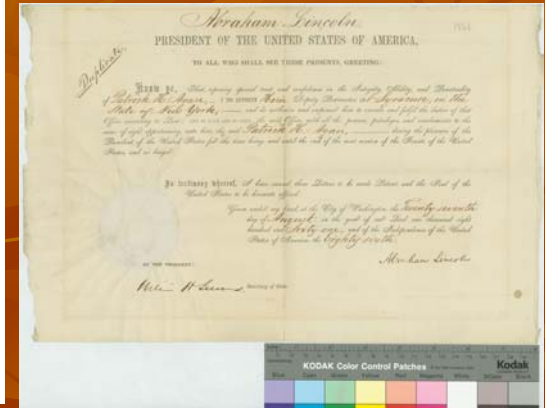 Abraham Lincoln,
1861
PRESIDENT OF THE UNITED STATES OF AMERICA,
Duplicate.
TO ALL WHO SHALL SEE THESE PRESENTS, GREETING:
Know ye, That, reposing special trust and confidence in the Integrity, Ability, and Punctuality
of Patrick H. Agan, I DO APPOINT Him Deputy Postmaster at Syracuse, in the
State of New York, and do authorize and empower him to execute and fulfil the duties of that
Office according to Law; AND TO HAVE AND TO HOLD the said Office, with all the powers, privileges, and emoluments to the
same of right appertaining, unto him, the said Patrick H. Agan, during the pleasure of the
President of the United States for the time being, and until the end of the next session of the Senate of the United
States, and no longer.
In testimony whereof, I have caused these Letters to be made Patent and the Seal of the
United States to be hereunto affixed.
Given under my hand, at the City of Washington, the Twenty seventh
day of August, in the year of our Lord one thousand eight
hundred and Sixty one, and of the Independence of the United
States of America the Eighty sixth.
Abraham Lincoln
BY THE PRESIDENT:
Secretary of State.
KODAK Color Control Patches
Kodak
Blue Cyan Green Yellow Red Magenta White 3/Color Black